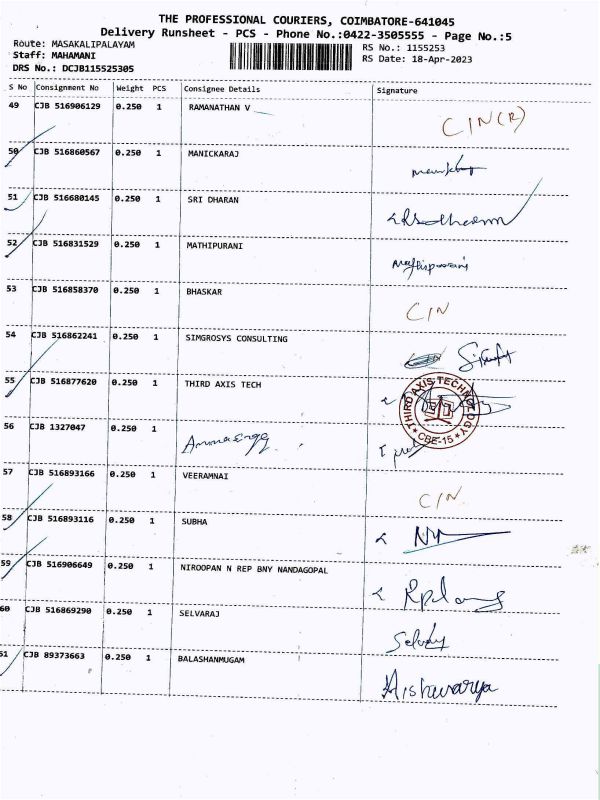 THE PROFESSIONAL COURIERS, COIMBATORE-641045
Delivery Runsheet - PCS - Phone No.:0422-3505555 - Page No.:5
Route: MASAKALIPALAYAM
Staff: MAHAMANI
DRS No.: DCJB115525305
RS No.: 1155253
RS Date: 18-Apr-2023
S No Consignment No Weight PCS Consignee Details Signature
49 CJB 516906129 0.250 1 RAMANATHAN V CIN(R)
50 CJB 516860567 0.250 1 MANICKARAJ
51 CJB 516680145 0.250 1 SRI DHARAN
52 CJB 516831529 0.250 1 MATHIPURANI
53 CJB 516858370 0.250 1 BHASKAR CIN
54 CJB 516862241 0.250 1 SIMGROSYS CONSULTING
55 CJB 516877620 0.250 1 THIRD AXIS TECH THIRD AXIS TECHNOLOGY CBE-15
56 CJB 1327047 0.250 1
57 CJB 516893166 0.250 1 VEERAMNAI CIN
58 CJB 516893116 0.250 1 SUBHA
59 CJB 516906649 0.250 1 NIROOPAN N REP BNY NANDAGOPAL
60 CJB 516869290 0.250 1 SELVARAJ
61 CJB 89373663 0.250 1 BALASHANMUGAM Aishwarya